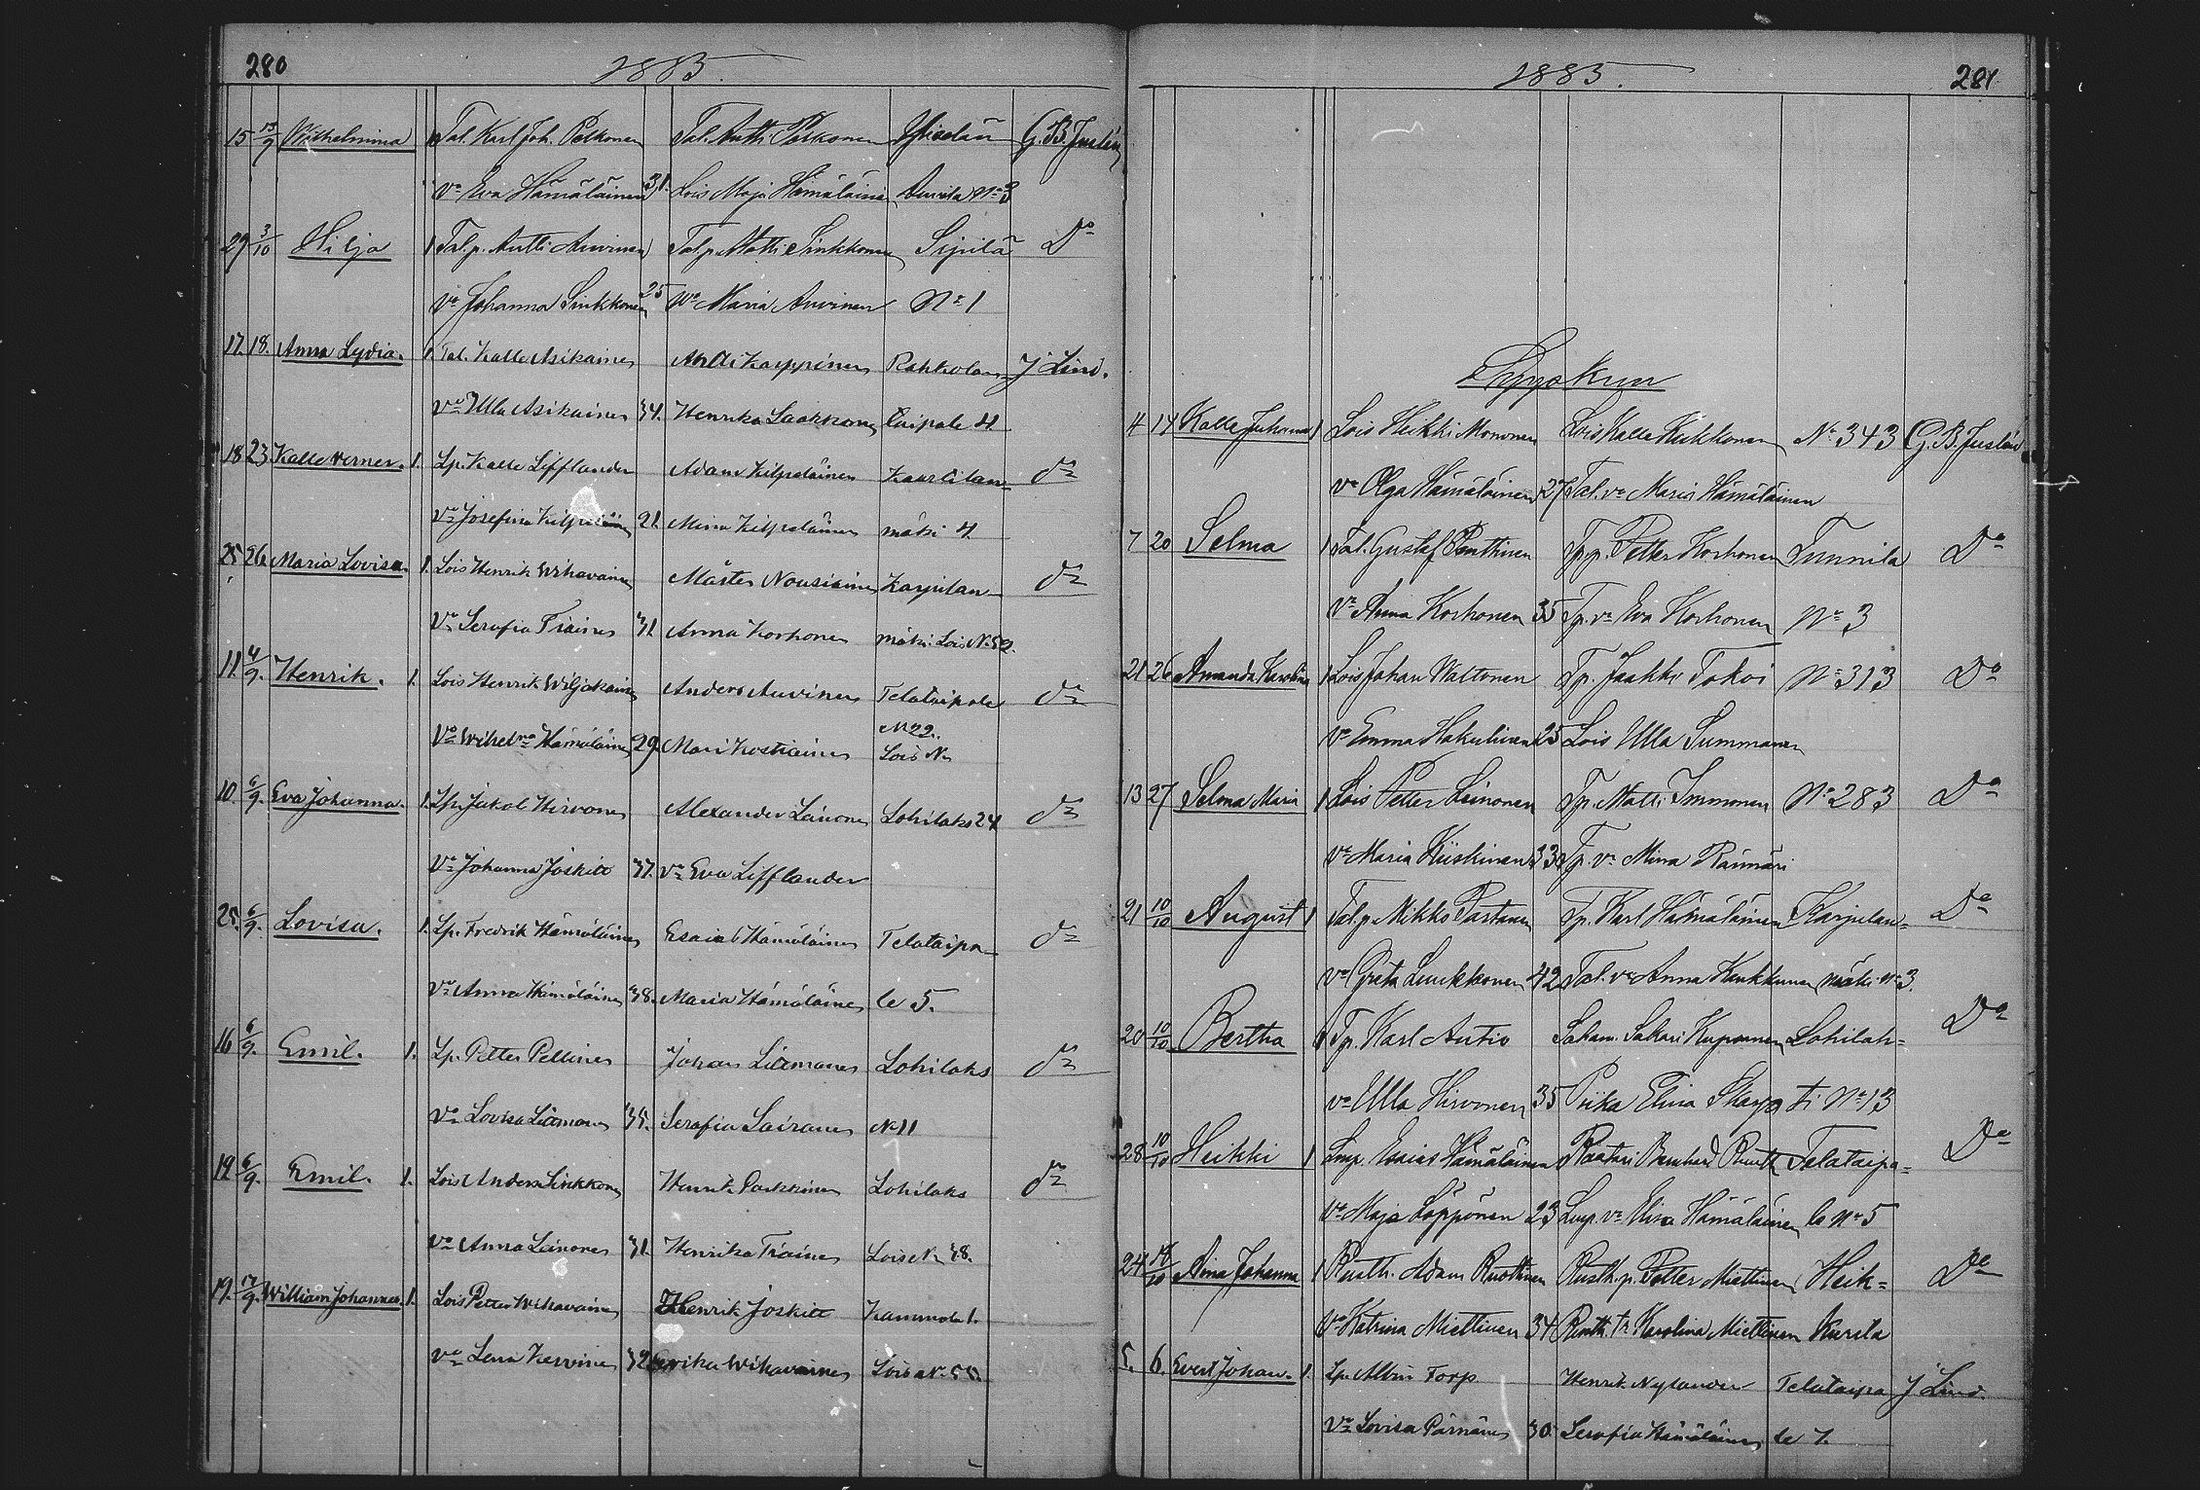 280
1885.
15 15/9 Wilhelmina 1 Tal. Karl Joh. Pelkonen Tal. Antti Pelkonen G. B. Juslén
Vo Eva Hämäläinen 31. Lois Maja Hämäläinen No 3
29 3/10 Hilja 1 Tal. p. Antti Auvinen Tal. p. Matti Sinkkonen Sipilä Do
Vo Johanna Sinkkonen 25 Wo Maria Auvinen No 1
17. 18. Anna Lydia. 1. Tal. Kalle Asikainen Antti Karppinen Rahkola J Lind.
Vo Ulla Asikainen 34. Henrika Laakkonen Taipale 4.
18 23 Kalle Verner. 1. Lp. Kalle Lifflander Adam Kilpeläinen Kaarlilan do
Vo Josefina Kilpeläinen 21. Mina Kilpeläinen mäki 4.
25 26 Maria Lovisa. 1. Lois Henrik Wihavainen Mårten Nousiainen Karjulan do
Vo Serafia Tiainen 31. Anna Korhonen mäki Lois N. 52.
11. 4/9. Henrik. 1. Lois Henrik Wiljakainen Anders Auvinen Telataipale do
N 22.
Vo Wilhelma Hämäläinen 29. Mari Kostiainen Lois N
10. 6/9. Eva Johanna. 1. Lp. Jakob Hirvonen Alexander Länonen Lohilaks 24 do
Vo Johanna Jäskite 37. Vo Eva Lifflander
25. 6/9. Lovisa. 1. Lp. Fredrik Hämäläinen Esaias Hämäläinen Telataipa do
Vo Anna Hämäläinen 38. Maria Hämäläinen le 5.
16 6/9. Emil. 1. Lp. Petter Pellinen Johan Liimanen Lohilaks do
Vo Lovisa Liimanen 35. Serafia Sairanen N 11
19. 6/9. Emil. 1. Lois Anders Sinkkonen Henrik Parkkinen Lohilaks do
Vo Anna Länonen 31. Henrika Tiainen Lois N. 38.
19. 17/9. William Johannes. 1. Lois Petter Wihavainen Henrik Jäskite Kammola 1.
Vo Lena Kervinen 32. Wihavainen Lois N. 55.
281
1885.
Syyskuu
4 14 Kalle Juhana 1 Lois Heikki Mononen Lois Kalle Kukkonen No 343 G. B. Juslén
vo Olga Hämäläinen 27 Tal. vo Maria Hämäläinen
7 20 Selma 1 Tal. Gustaf Penttinen Tp. p. Petter Korhonen Tunnila Do
Vo Anna Korhonen 35 Tp. vo Eva Korhonen No 3
21 26 Amanda Karolina 1 Lois Johan Waltonen Tp. Jaakko Tokoi No 313 Do
Vo Emma Hakulinen 25 Lois Ulla Summanen
13 27 Selma Maria 1 Lois Petter Leinonen Tp. Matti Immonen No 283 Do
Vo Maria Kiiskinen 33 Tp. vo Mina
21 10/10 August 1 Tal. p. Mikko Partanen Tp. Karl Hämäläinen Karjulan= Do
Vo Greta Luukkonen 42 Tal. vo Anna Kaukkunen mäki No 3.
20 10/10 Bertha 1 Tp. Karl Autio Sakari Kuparinen Lohilah= Do
vo Ulla Hirvonen 35 Piika Elina Skarp ti No 13
28 10/10 Heikki 1 Lmp. Esaias Hämäläinen Räätäri Bernhard Ruuth Telataipa= Do
Vo Maja Löppönen 23 Lmp. vo Elisa Hämäläinen le No 5
24 18/10 Aina Johanna 1 Rusth. Adam Ruottinen Rusth. p. Petter Miettinen Heik= Do
Vo Katrina Miettinen 34 Rusth. tr Karolina Miettinen kurila
5. 6. Evert Johan. 1. Lp. Albin Torp Henrik Nylander Telataipa J Lind.
Vo Lovisa Pärnänen 30. Serafia Hämäläinen le 7.